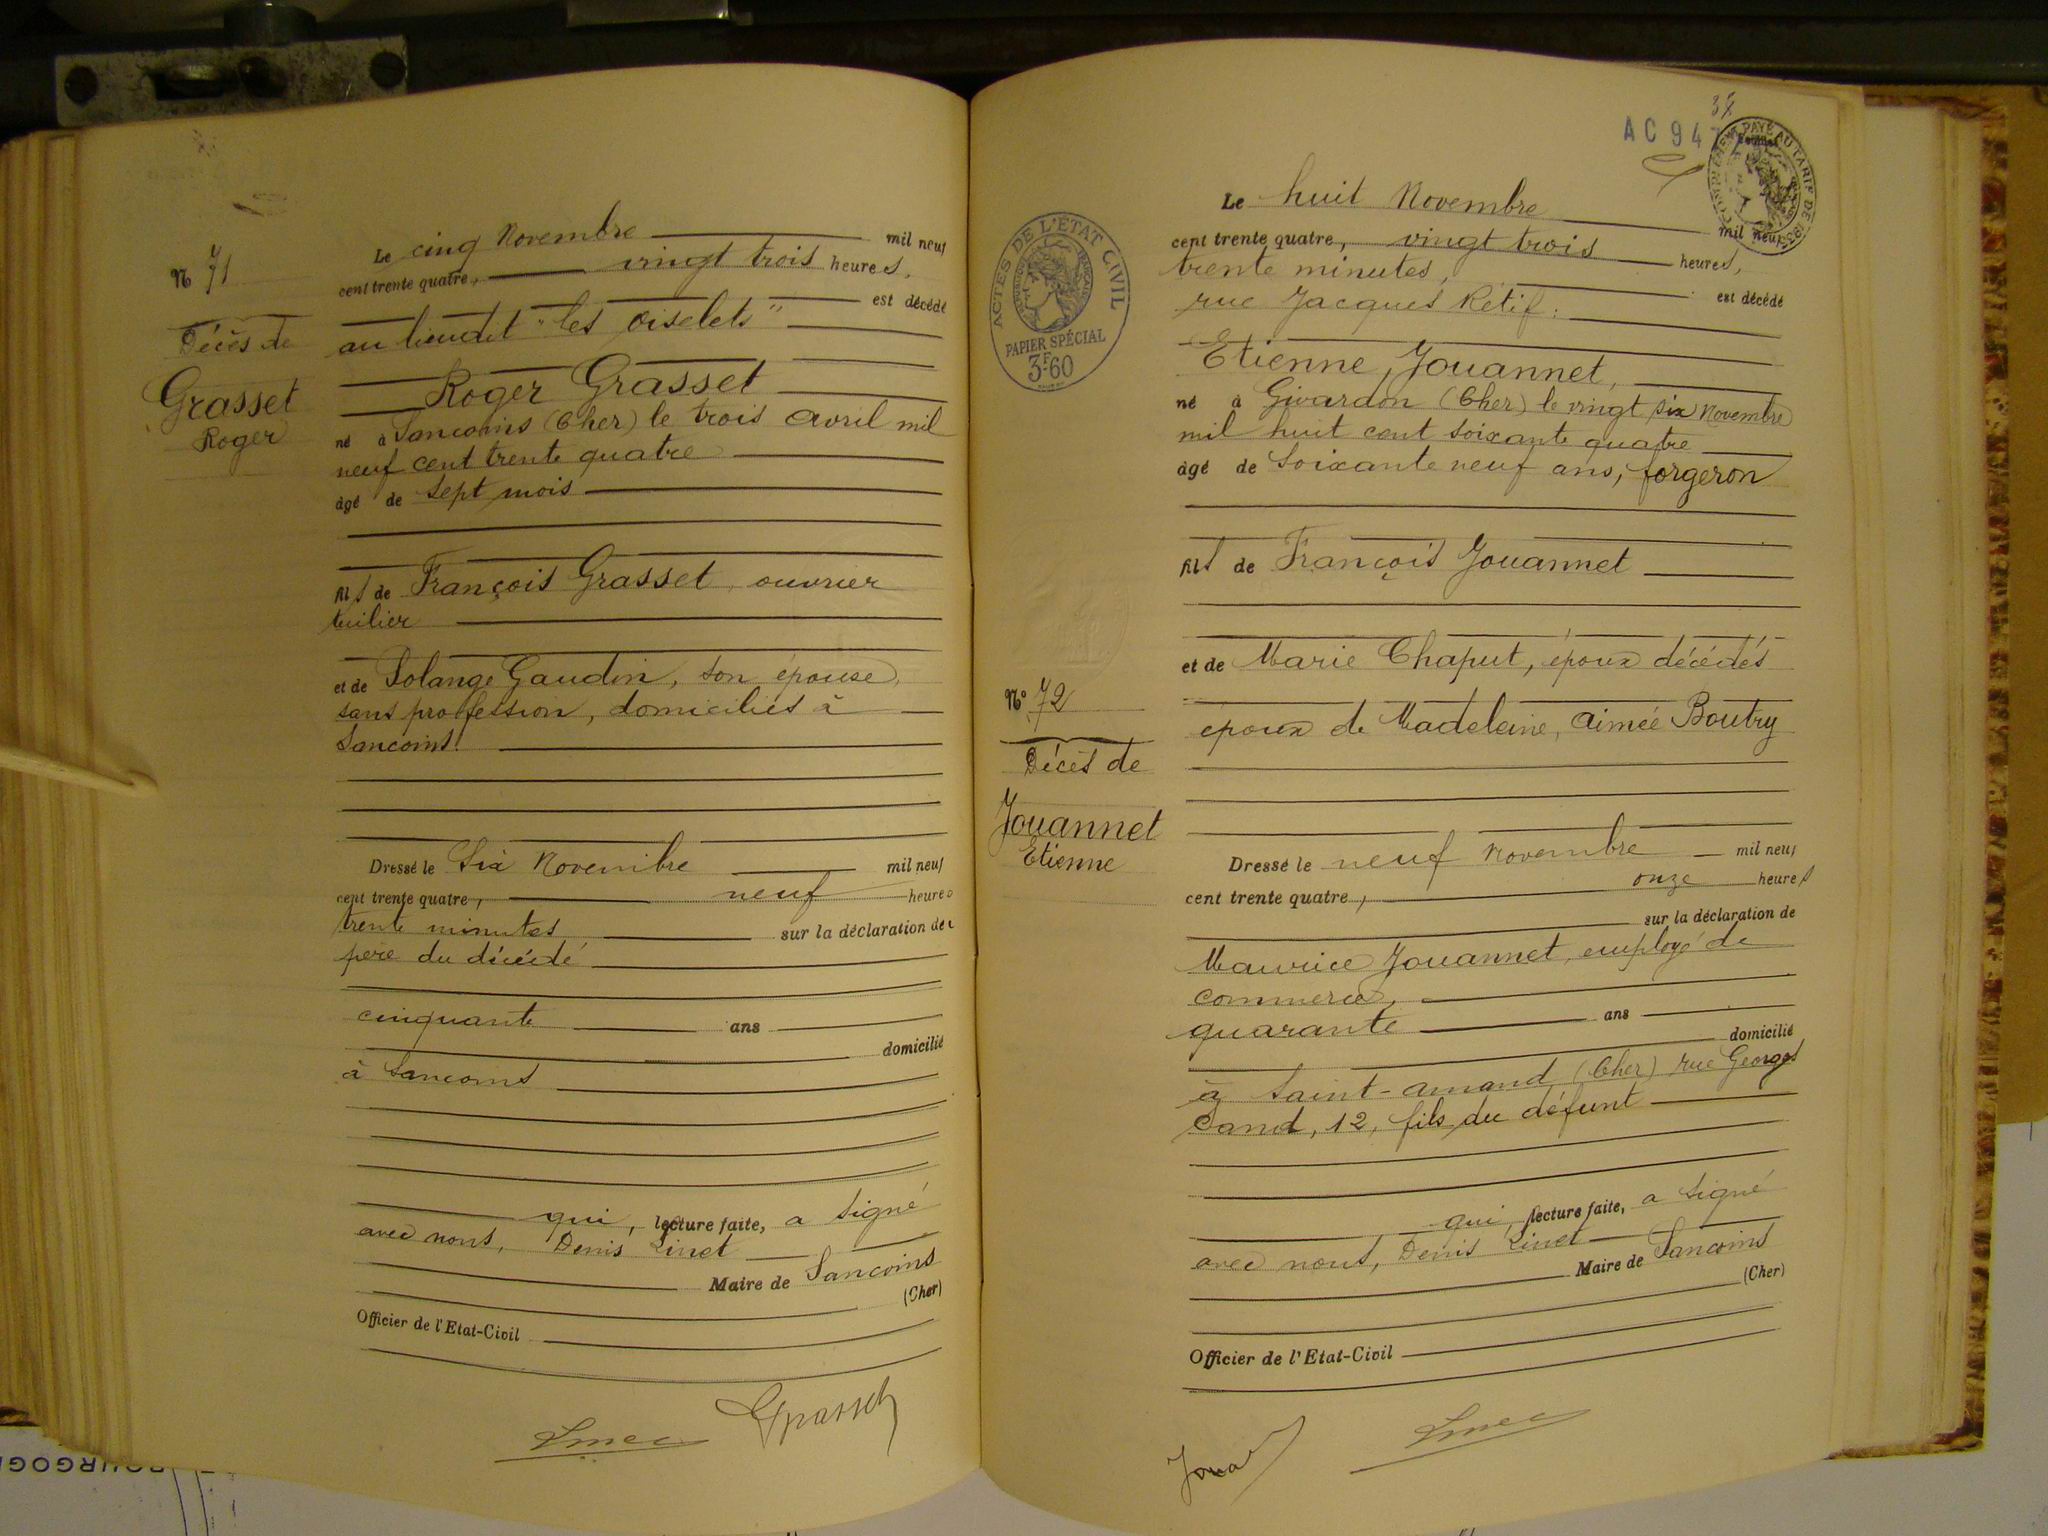 N 71
Décès de
Grasset
Roger
Le cinq Novembre mil neuf
cent trente quatre, vingt trois heures,
est décédé
au lieudit "les Oiselets"
Roger Grasset
né à Sancoins (Cher) le trois Avril mil
neuf cent trente quatre
âgé de sept mois
fils de François Grasset, ouvrier
tuilier
et de Solange Gaudin, son épouse,
sans profession, domiciliés à
Sancoins.
Dressé le Six Novembre mil neuf
cent trente quatre, neuf heures
trente minutes sur la déclaration du
père du décédé
cinquante ans
domicilié
à Sancoins
qui, lecture faite, a signé
avec nous, Denis Linet
Maire de Sancoins
(Cher)
Officier de l'Etat-Civil
Grasset
AC 94
ACTES DE L'ÉTAT CIVIL
PAPIER SPÉCIAL
3F.60
Le huit Novembre mil neuf
cent trente quatre, vingt trois heures,
trente minutes, est décédé
rue Jacques Rétif:
Etienne, Jouannet,
né à Givardon (Cher) le vingt six Novembre
mil huit cent soixante quatre
âgé de soixante neuf ans, forgeron
fils de François Jouannet
et de Marie Chaput, époux décédés
époux de Madeleine, Aimée Boutry
N° 72
Décès de
Jouannet
Etienne
Dressé le neuf novembre mil neuf
cent trente quatre, onze heures
sur la déclaration de
Maurice Jouannet, employé de
commerce,
quarante ans
domicilié
à Saint-Amand (Cher) rue Georges
Sand, 12, fils du défunt
qui, lecture faite, a signé
avec nous, Denis Linet
Maire de Sancoins
(Cher)
Officier de l'Etat-Civil